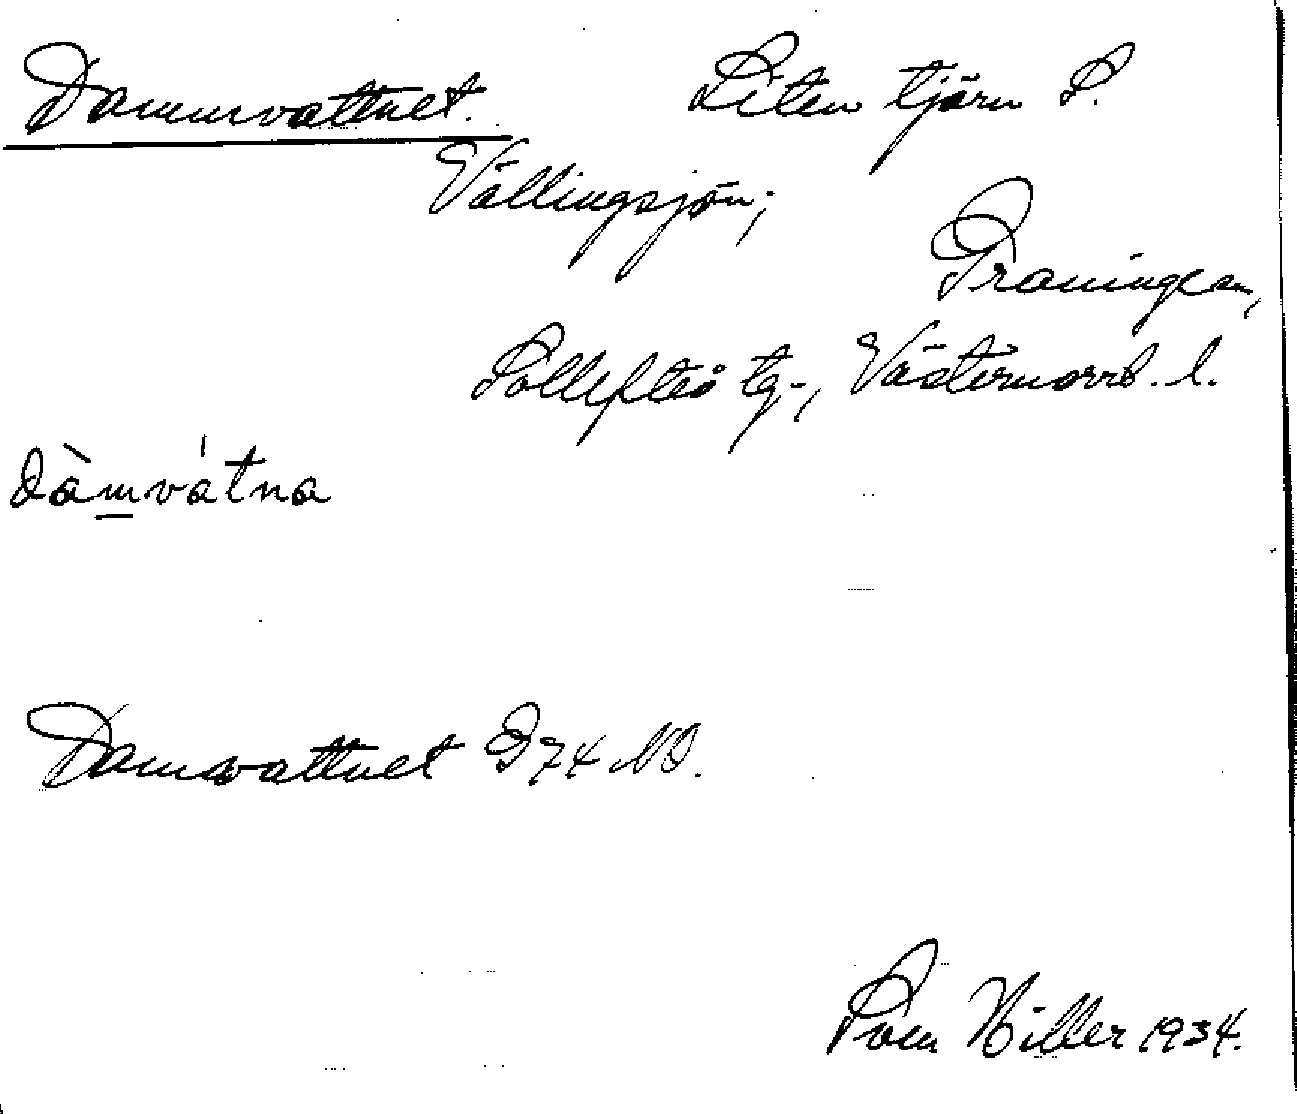 Dammvattnet. Liten tjärn S.
Vällingsjön;
Graningean,
Sollefteå tg., Västernorrl. l.
dàmvátna
Damvattnet G74 NO.
Tom Hiller 1934.